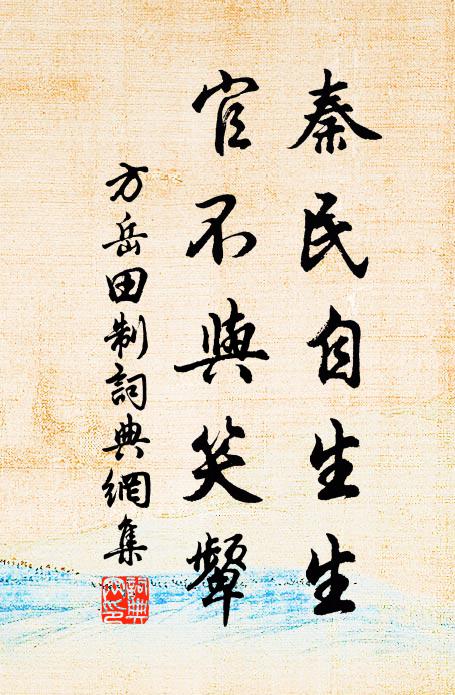 秦民自生生
官不與笑顰
方岳田制詞典網集